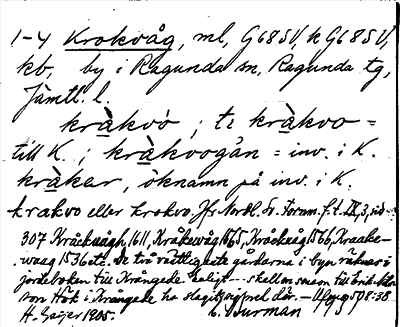 1-4 Krokvåg, ml, G68SV, k G68SV,
kb, by i Ragunda sn, Ragunda tg,
Jämtl. l.
kràkvó ; t: kràkvo =
till K. ; kràkvogån = inv. i K.
kràkar, öknamn på inv. i K.
krakvo eller krokvo. Jfr Nordl. Sv. Fornm. f. t. IX, 3, sid
307 Kråckwågh, 1611, Kråkewåg 1565, Kråckuåg 1566, Kraake-
waag 1536 etc. De två västligaste gårdarna i byn räknas i
jordeboken till Krångede. Enligt --- skall en smed till
son Hök i Krångede ha slagit sig ned där. -
H. Geijer 1905. C. Burman